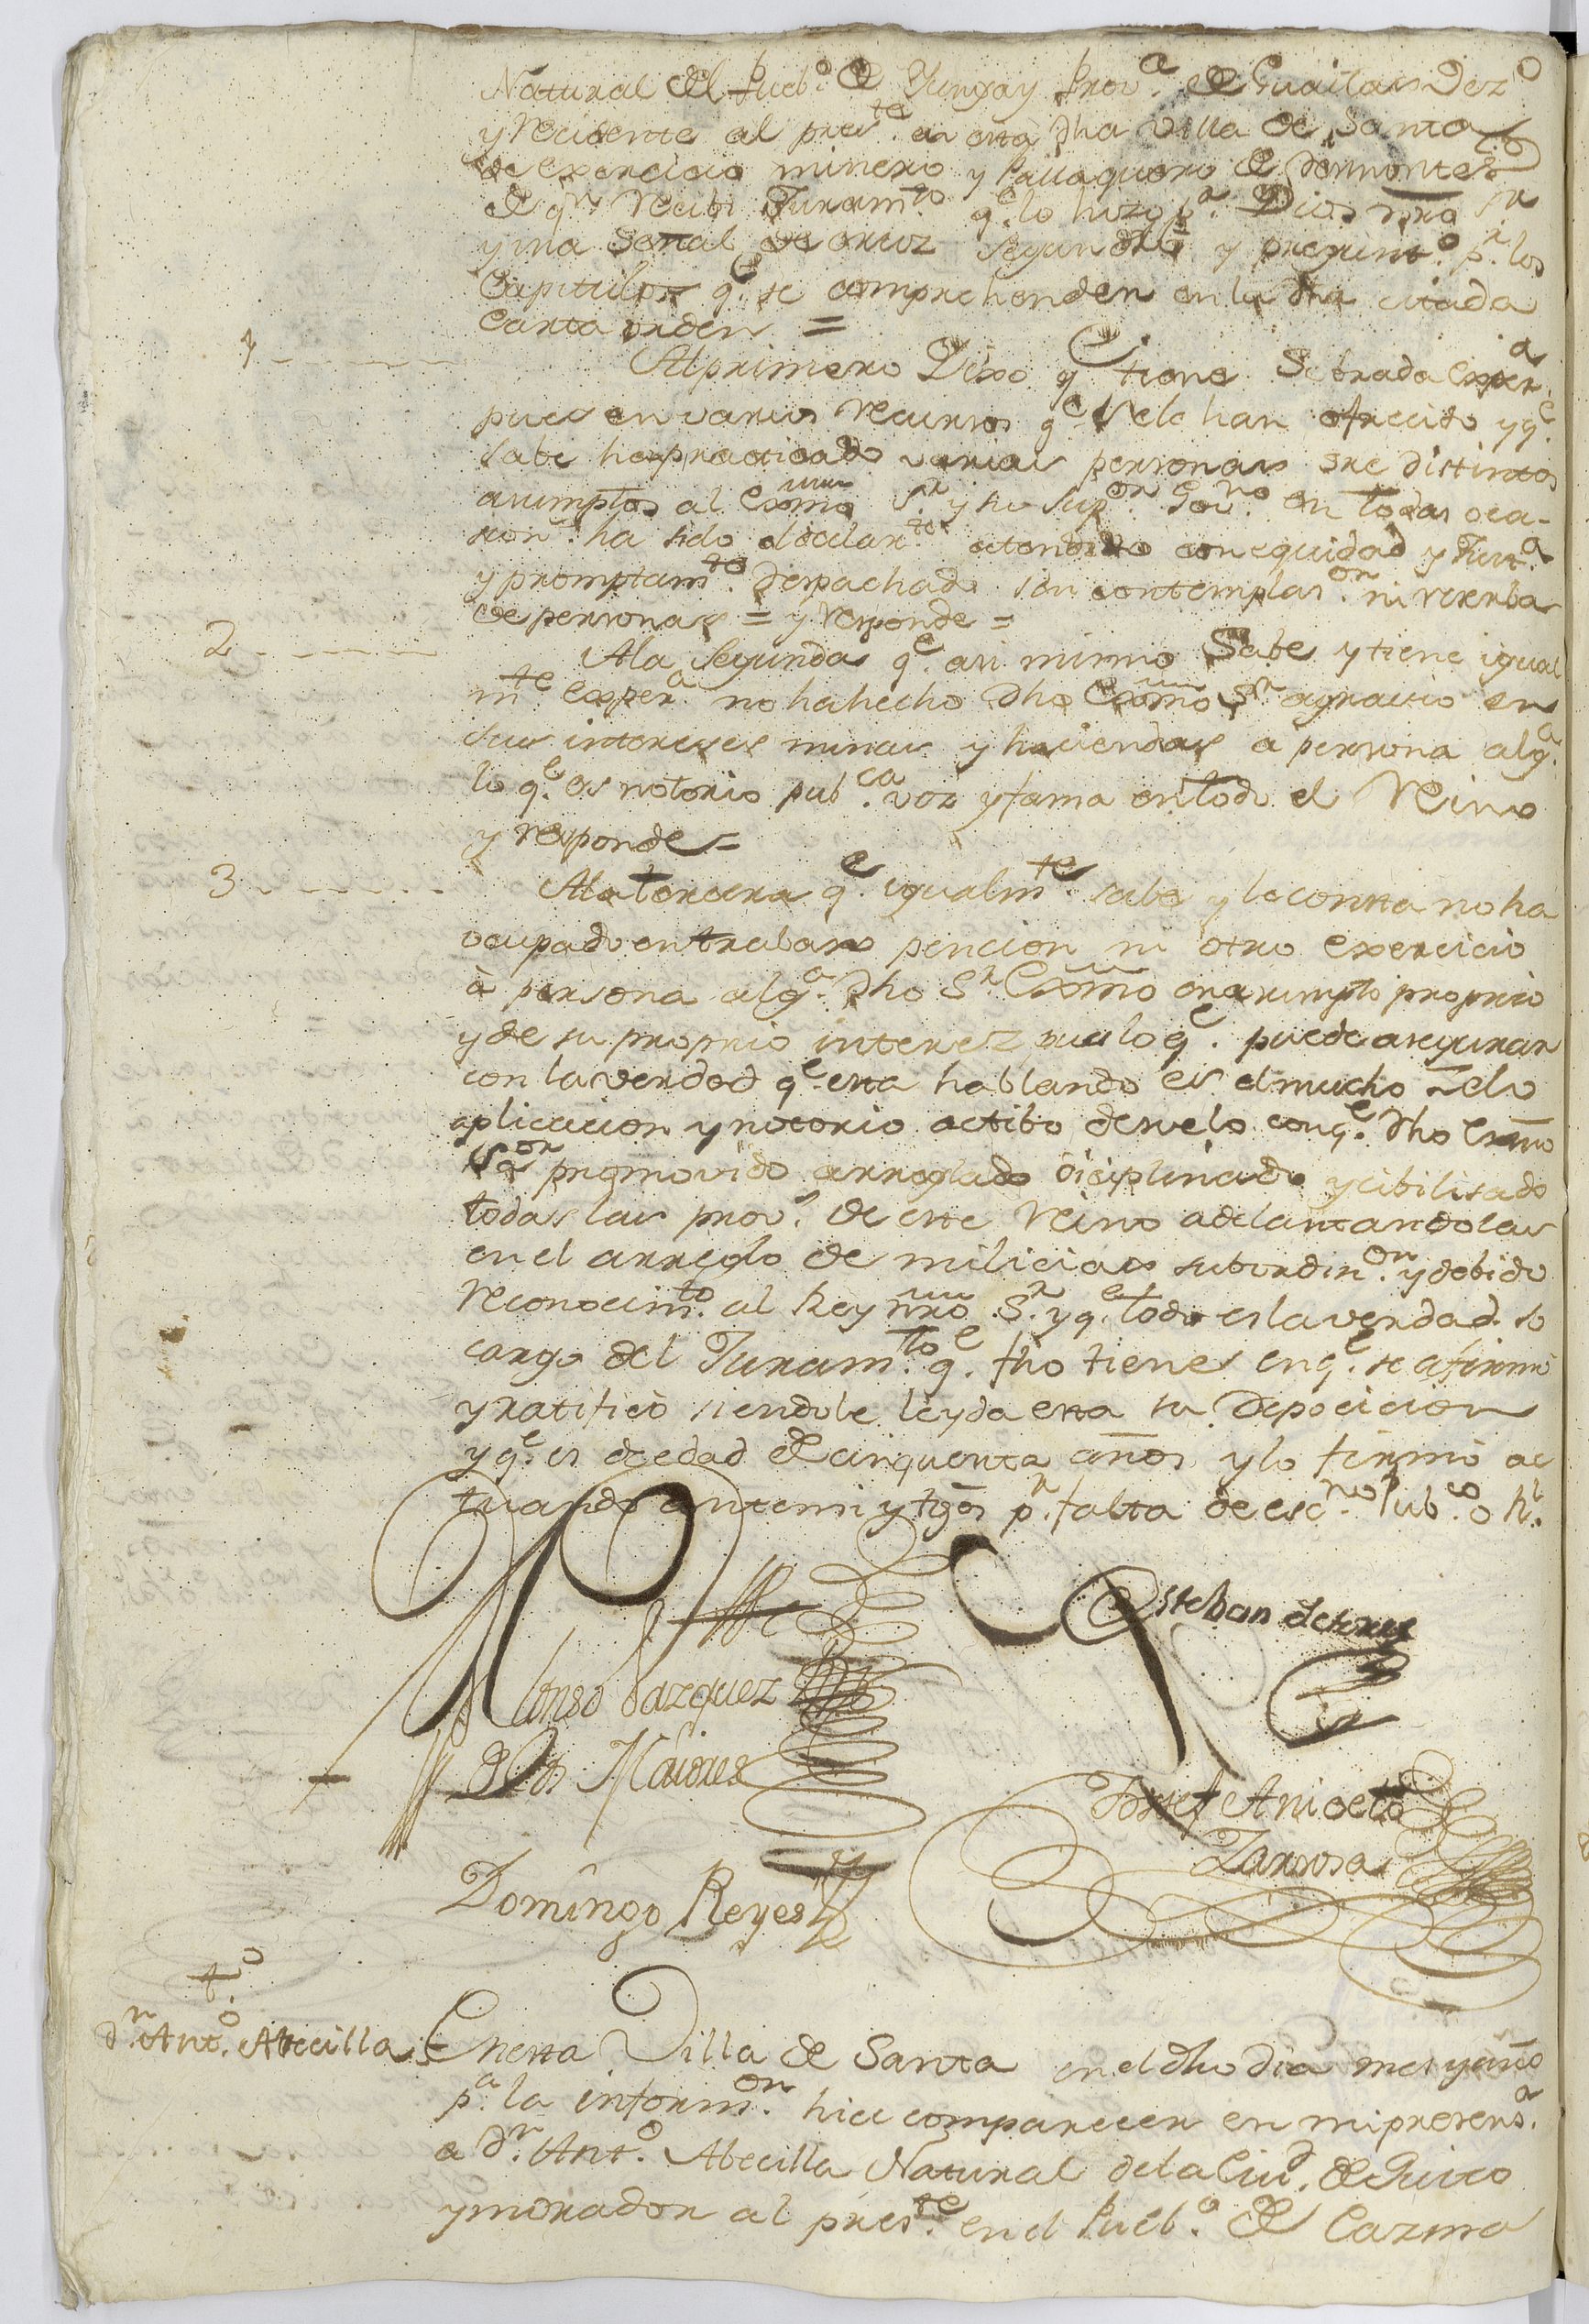 Natural del Pueb.º de Yungay Prov.ª de Guailas Vez.º
y recidente al pres.te en esta dha Villa de Santa
de exercicio minero y de desmontes
de q.n recibi Juram.to q.e lo hizo p.r Dios nro S.r
y una Señal de cruz segun dro y pregunt.º p.r los
Capitulos q.e se comprehenden en la dha citada
Carta orden =
1 Al primero Dixo q.e tiene Sobrada exper.ª
pues en varios recursos q.e se le han ofrecido y q.e
sabe han practicado varias personas sre distintos
asumptos al Exmo S.r y su Sup.or Gov.no en todas oca-
sion.s ha sido el declar.te atendido con equidad y Just.ª
y promptam.te despachado sin contemplas.on ni reserba
de personas = y responde =
2 Ala Segunda q.e asi mismo Sabe y tiene igual
m.te exper.ª no ha hecho dho Exmo S.r agravio en
sus intereses minas y haciendas a persona alg.ª
lo q.e es notorio pub.ca voz y fama en todo el Reino
y responde =
3 Ala tercera q.e igualm.te sabe y le consta no ha
ocupado en trabaxo pencion ni otro exercicio
à persona alg.ª dho S.r Exmo en asumpto proprio
y de su proprio interez pues lo q.e puede asegurar
con la verdad q.e esta hablando es el mucho zelo
aplicacion y notorio actibo desvelo con q.e dho Exmo
S.or ha promovido arreglado diciplinado y cibilisado
todas las prov.s de este Reino adelantandolas
en el arreglo de milicias subordin.on y debido
reconocim.to al Rey nro S.r y q.e todo es la verdad so
cargo del Juram.to q.e fho tiene en q.e se afirmo
y ratificò siendole leyda esta su Deposicion
y q.e es de edad de cinquenta años y lo firmò ac
tuando ante mi y tgos p.r falta de esc.no Pub.co o R.l
Alonso Vazquez
Esteban de torres
de Maiores
Josef Aniceto
Larrosa
Domingo Reyes
t.º
d.n Ant.º Abecilla
En esta Villa de Santa en el dho dia mes y año
p.ª la inform.on hice comparecer en mi presens.ª
a d.n Ant.º Abecilla Natural dela Ciu.d de Quito
y morador al pres.te en el Pueb.º de Cazma